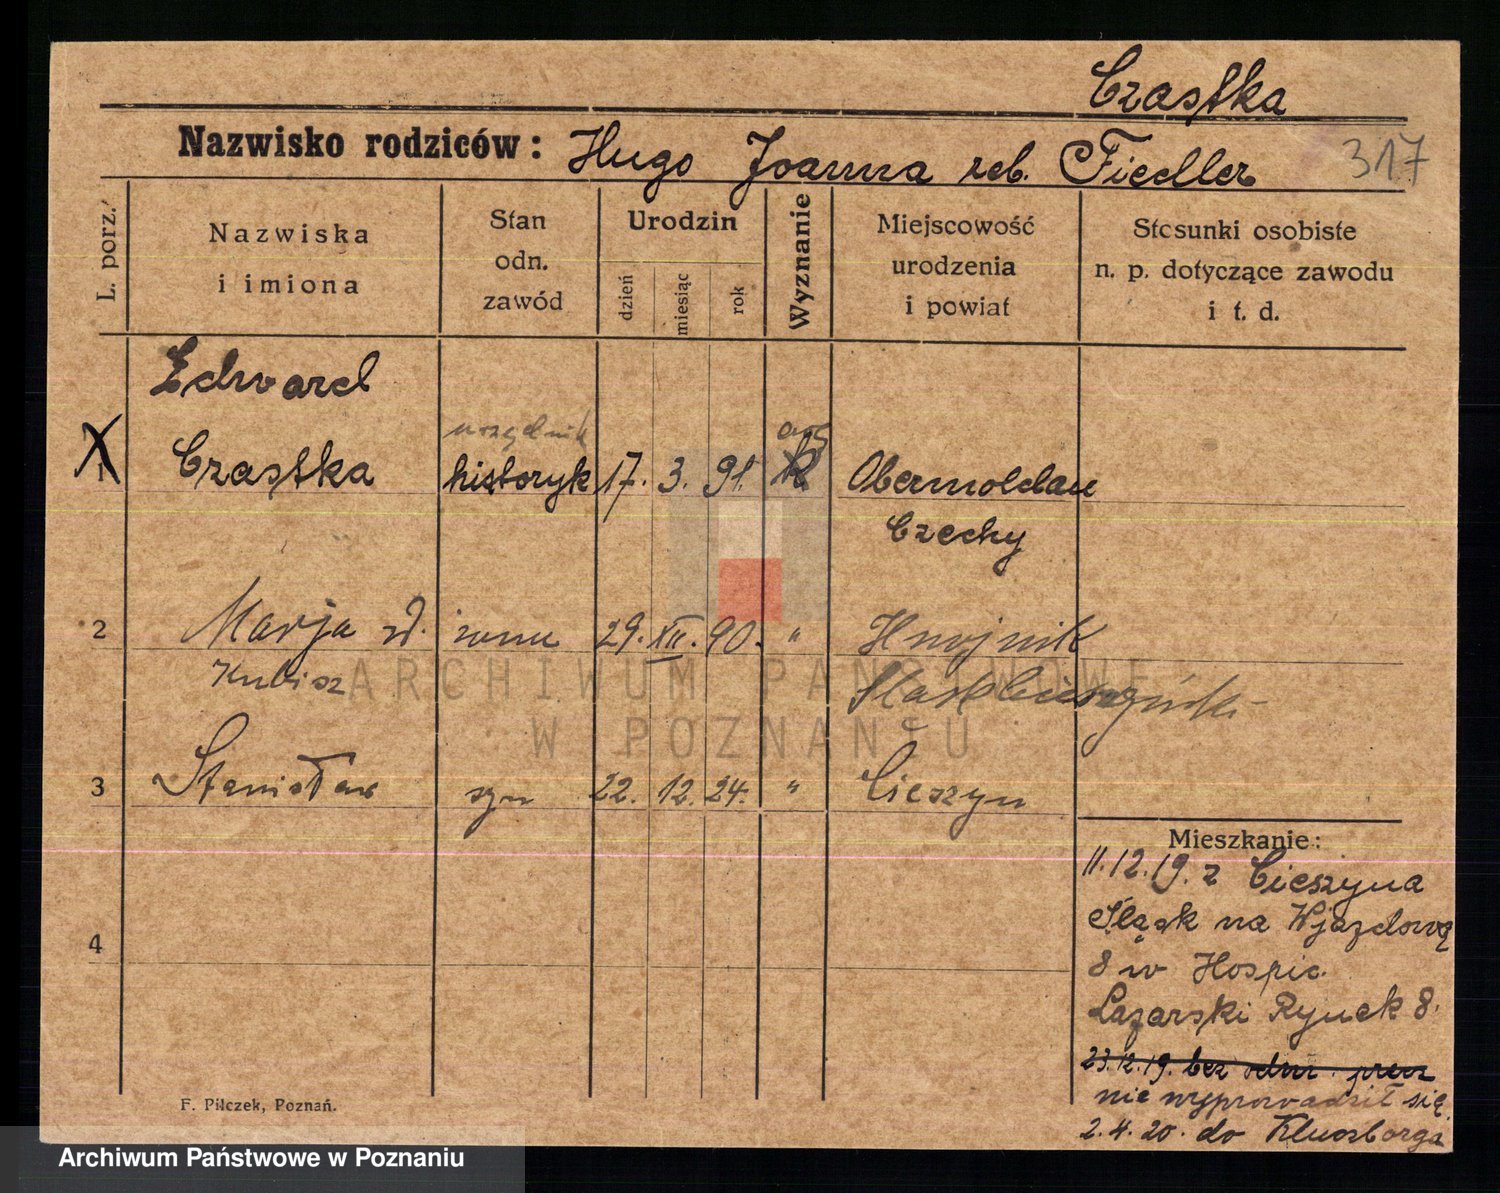 Czastka
Nazwisko rodziców: Hugo Joanna rcb. Fiedler 317
L. porz.
Nazwiska
i imiona
Stan
odn.
zawód
Urodzin
dzień
miesiąc
rok
Wyznanie
Miejscowość
urodzenia
i powiat
Stosunki osobiste
n. p. dotyczące zawodu
i t. d.
Edward
urzędnik
1 Czastka historyk 17. 3. 91. Obermoldau
Czechy
2 Marja żona 29. XII. 90. " Hnojnik
Kubisz
3 Stanisław syn 22. 12. 24. " Cieszyn
Mieszkanie:
11.12.19. z Cieszyna
Śląsk na Wjazdową
8 w Hospic.
Lazarski Rynek 8.
4
23.12.19. bez
nie wyprowadził się
2.4.20. do Kluczborga
F. Pilczek, Poznań.
ARCHIWUM PAŃSTWOWE
W POZNANIU
Archiwum Państwowe w Poznaniu